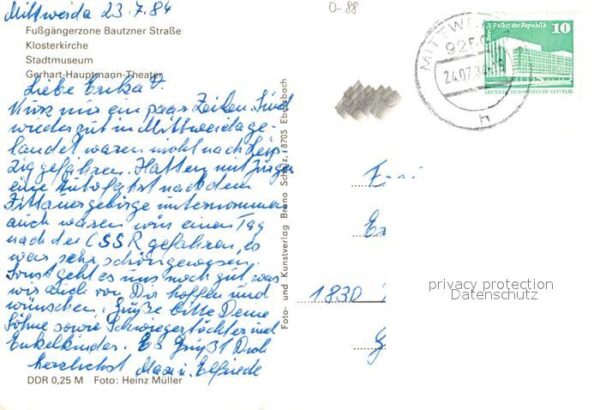 Mittweida 23.7.84
Fußgängerzone Bautzner Straße
Klosterkirche
Stadtmuseum
Gerhart-Hauptmann-Theater
Liebe Erika
Kurz nur ein paar Zeilen. Sind
wieder gut in Mittweida ge-
landet waren nicht nach Leip
zig gefahren. Hatten mit
eine Autofahrt nach dem
Zittauergebirge unternommen
auch waren wir einen Tag
nach der CSSR gefahren, es
war sehr schön gewesen.
Sonst geht es uns noch gut, was
wir auch von Dir hoffen und
wünschen. Grüße bitte Deine
Söhne sowie Schwiegertöchter und
Enkelkinder. Es grüßt Dich
herzlichst Max u. Elfriede
DDR 0,25 M Foto: Heinz Müller
Foto- und Kunstverlag Bruno Scholz, 8705 Ebersbach
0-88
MITTWE
925
24.07.84
h
Palast der Republik
10
DEUTSCHE DEMOKRATISCHE REPUBLIK
1830
privacy protection
Datenschutz